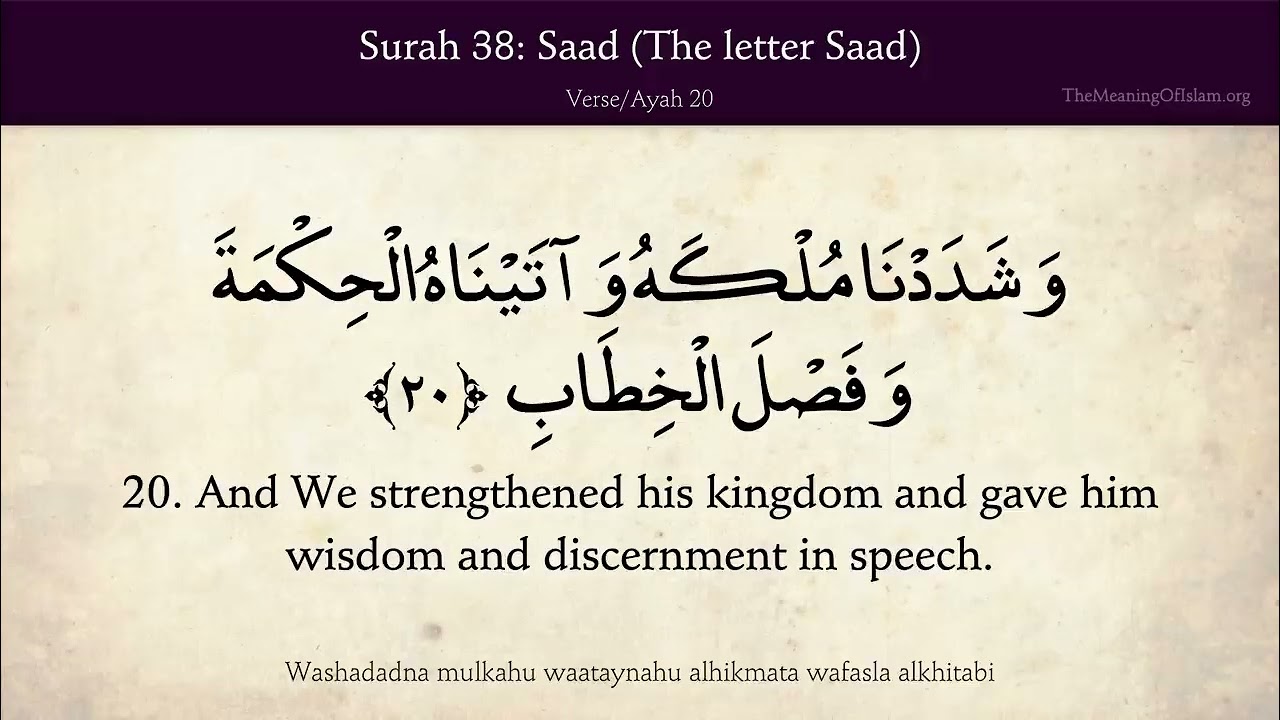 Surah 38: Saad (The letter Saad)
Verse/Ayah 20
TheMeaningOfIslam.org
وَ شَدَدْنَا مُلْكَهُ وَ آتَيْنَاهُ الْحِكْمَةَ
وَ فَصْلَ الْخِطَابِ ﴿٢٠﴾
20. And We strengthened his kingdom and gave him
wisdom and discernment in speech.
Washadadna mulkahu waataynahu alhikmata wafasla alkhitabi